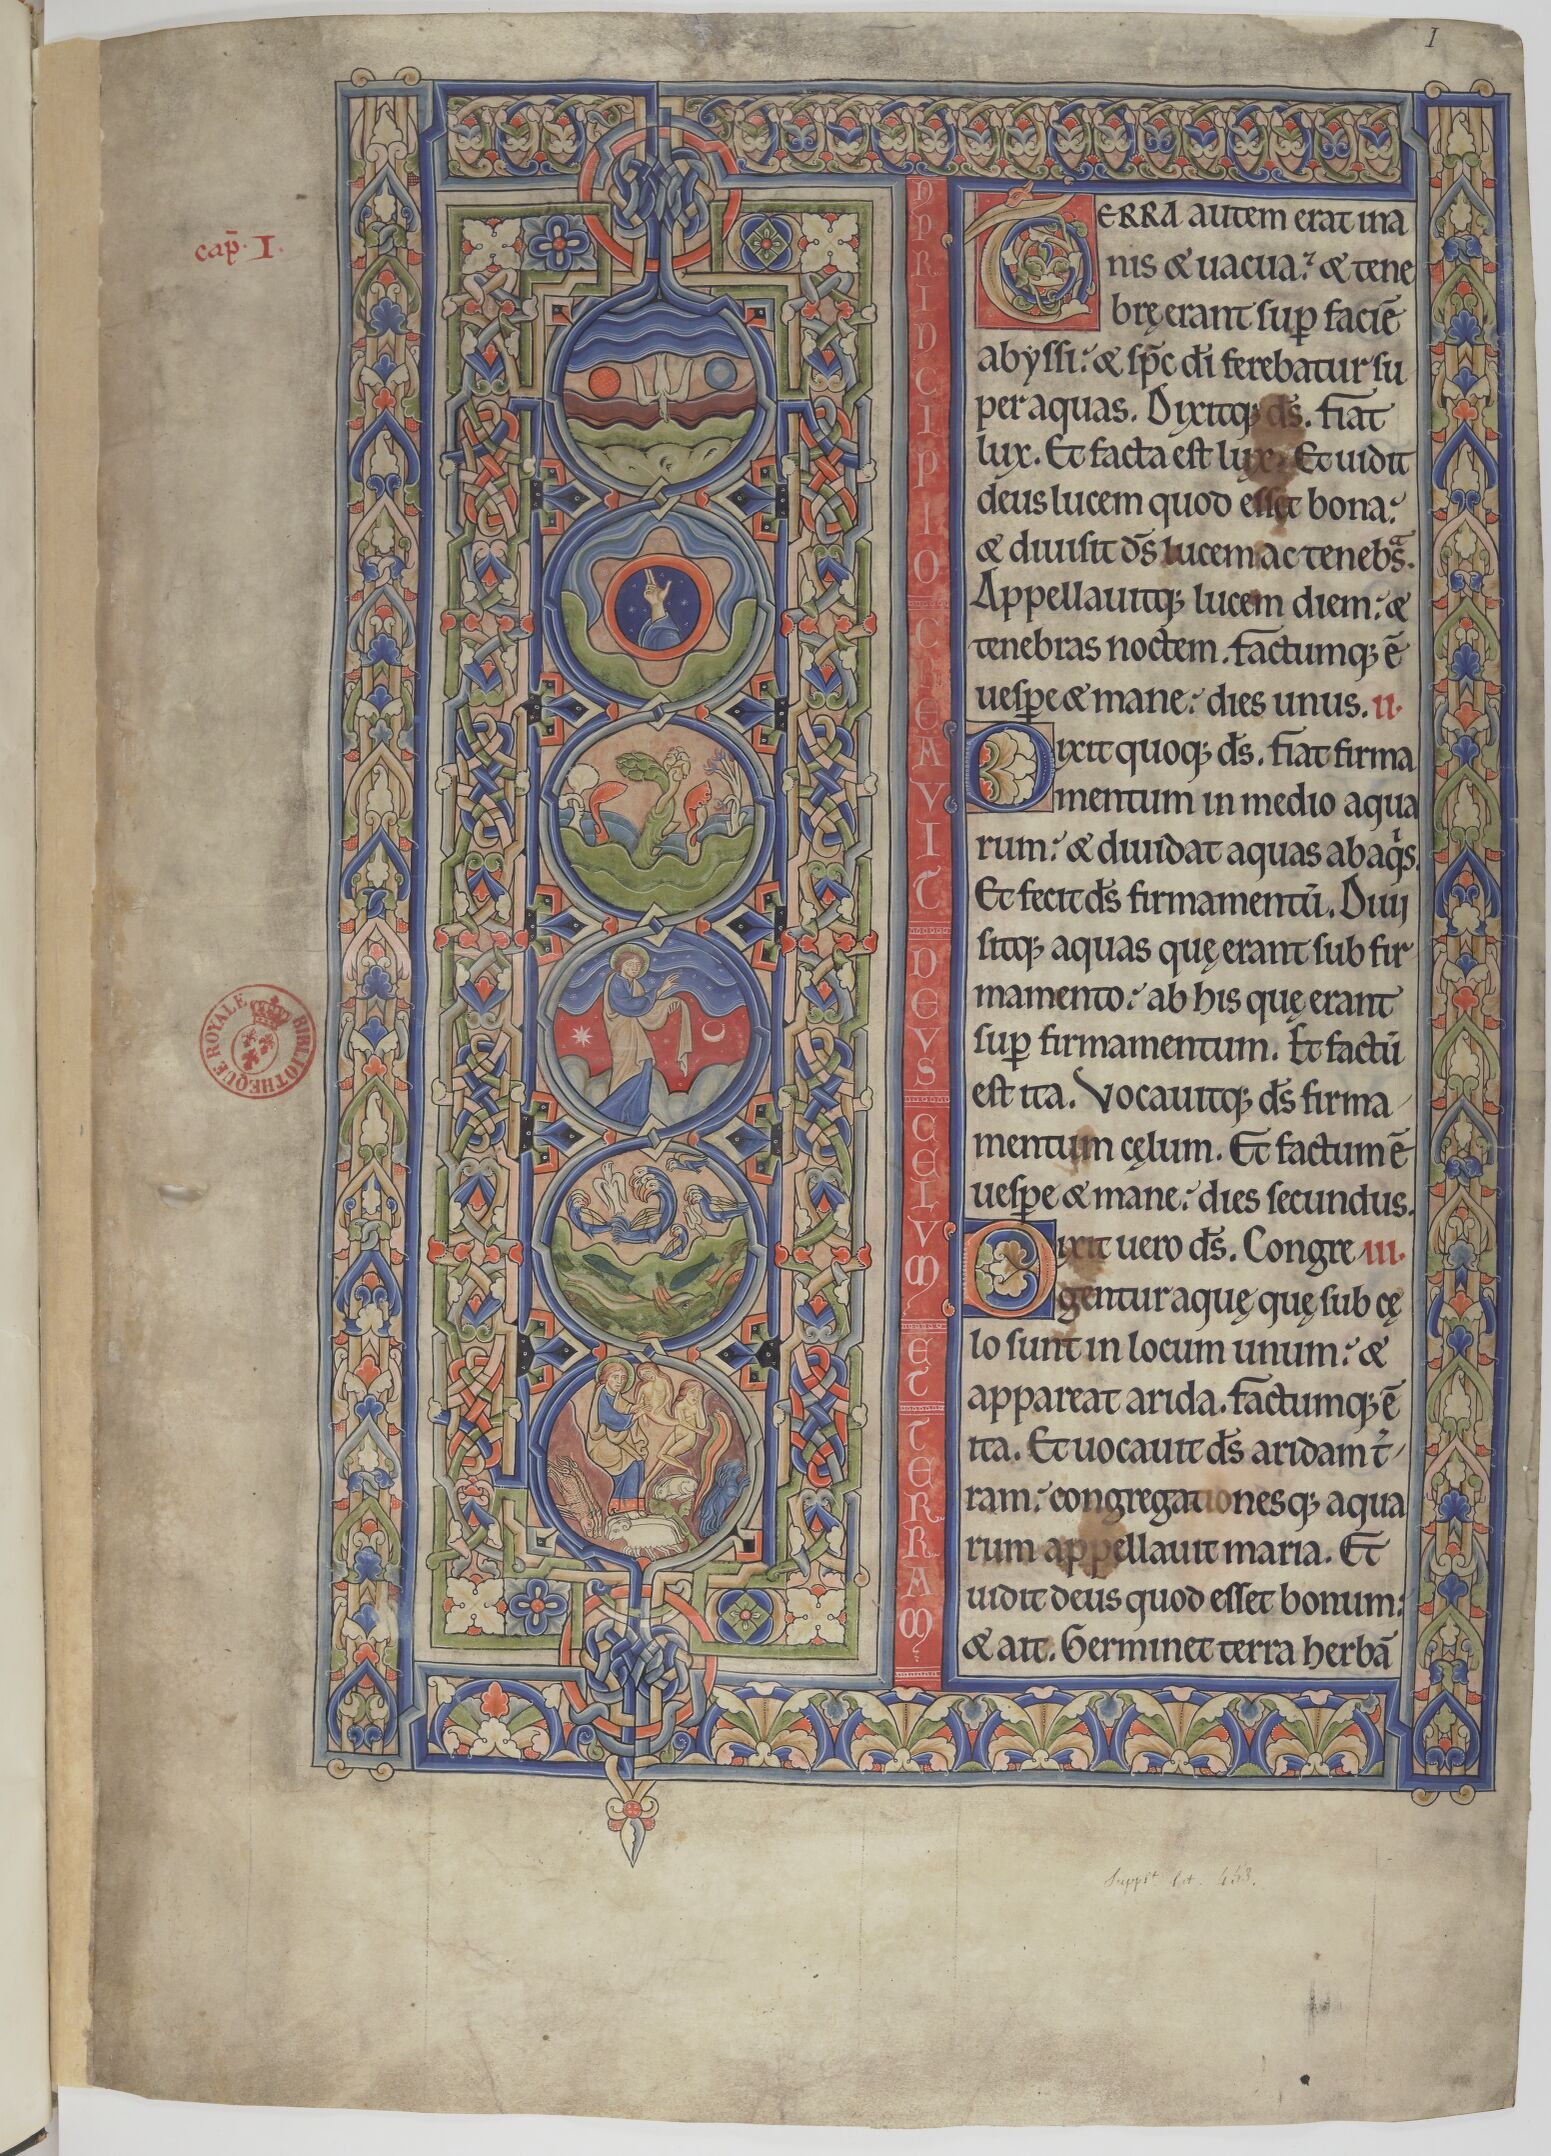 I
cap̄. I.
NPRINCIPIO CREAVIT DEVS CELVM ET TERRAM
TERRA autem erat ina
nis & uacua: & tene
bręerant sup faciē
abyssi: & sp̄c dı̄ ferebatur su
per aquas. Dixitq; d̄s. fiat
lux. Et facta est lux. Et uidit
deus lucem quod esset bona:
& diuisit d̄s lucem ac tenebs̄.
Appellauitq; lucem diem: &
tenebras noctem. factumq; ē
uespe & mane: dies unus. II.
Dixit quoq; d̄s. fiat firma
mentum in medio aqua
rum: & diuidat aquas ab aq̍s.
Et fecit d̄s firmamentū. Diuı
sitq; aquas quę erant sub fir
mamento: ab his quę erant
sup firmamentum. Et factū
est ita. Vocauitq; d̄s firma
mentum cęlum. Et factum ē
uespe & mane: dies secundus.
Dixit uero d̄s. Congre III.
gentur aquę quę sub cę
lo sunt in locum unum: &
appareat arida. factumq; ē
ita. Et uocauit d̄s aridam t̍
ram: congregationesq; aqua
rum appellauit maria. Et
uidit deus quod esset bonum:
& ait. Germinet terra herbā
BIBLIOTHEQUE ROYALE
Supplt. lat. 453.